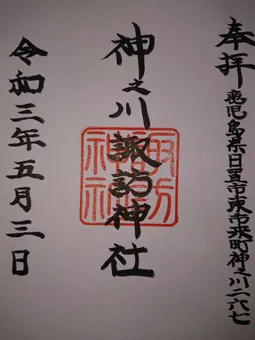 奉拝
鹿児島県日置市東市来町神之川二六七
神之川諏訪神社
諏訪神社
令和三年五月三日